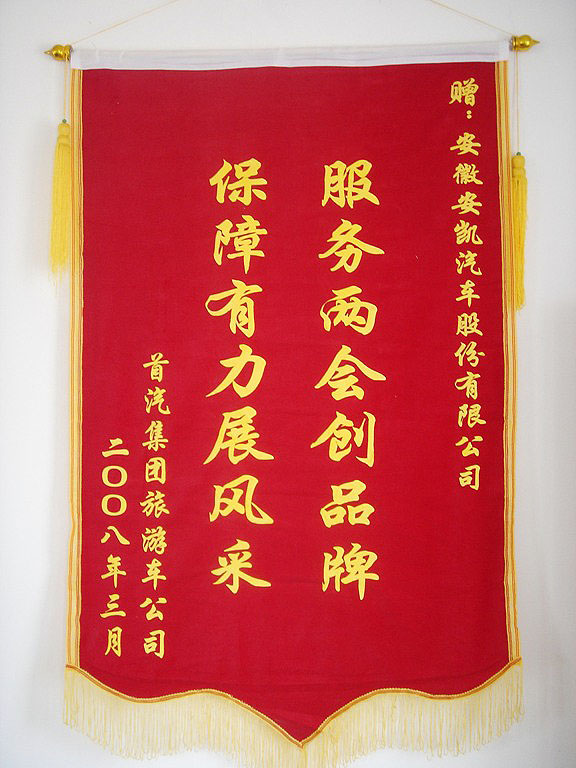 赠：安徽安凯汽车股份有限公司
服务两会创品牌
保障有力展风采
首汽集团旅游车公司
二〇〇八年三月